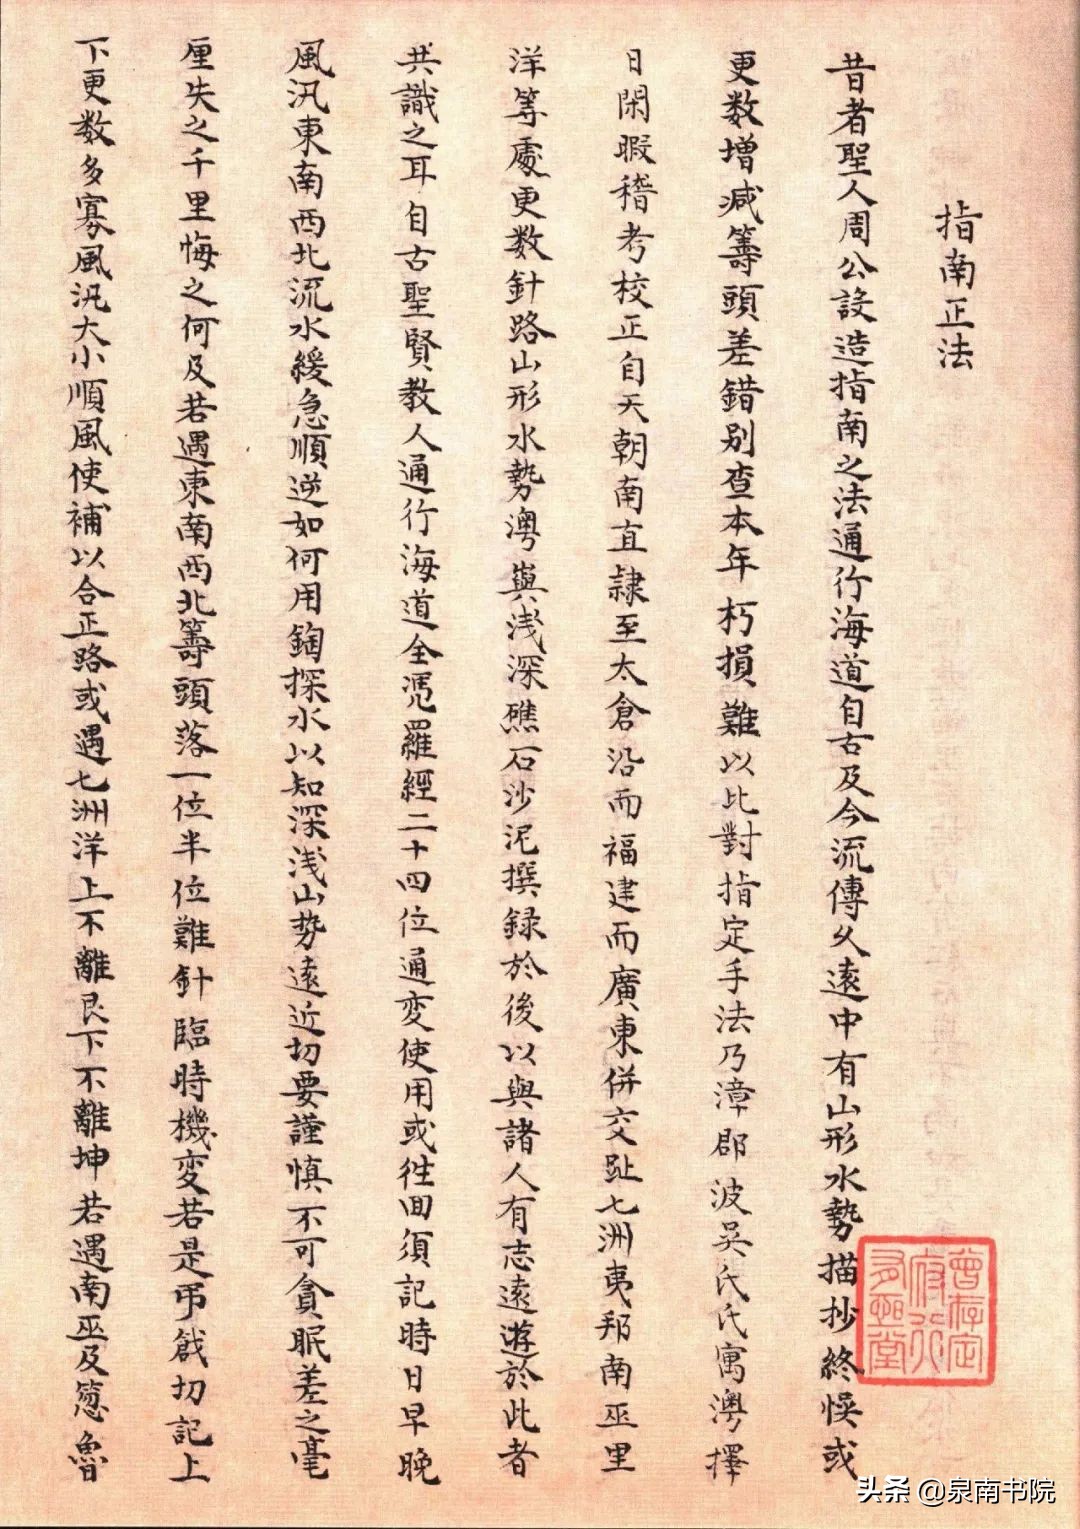 指南正法
昔者聖人周公設造指南之法通行海道自古及今流傳久遠中有山形水勢描抄終悞或
更数增减籌頭差錯別查本年朽損難以比對指定手法乃漳郡波吳氏氏寓澳擇
日閑暇稽考校正自天朝南直隷至太倉沿而福建而廣東併交趾七洲夷邦南巫里
洋等處更数針路山形水勢澳與浅深礁石沙泥撰録於後以與諸人有志遠遊於此者
共識之耳自古聖賢教人通行海道全凴羅經二十四位通变使用或徃回須記時日早晚
風汛東南西北流水緩急順逆如何用鋾探水以知深浅山势遠近切要謹慎不可貪眠差之毫
厘失之千里悔之何及若遇東南西北籌頭落一位半位難針臨時機变若是弔戧切記上
下更数多寡風汛大小順風使補以合正路或遇七洲洋上不離艮下不離坤若遇南巫及葱魯
曾存定
府行
有恥堂
头条 @泉南书院